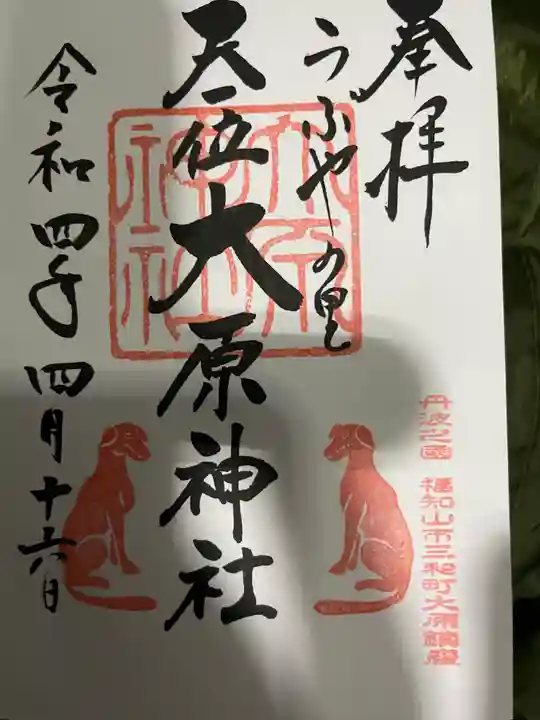 奉拝
うぶやの里
天一位大原神社
令和四年四月十六日
大原
神社
丹波之國 福知山市三和町大原鎮座